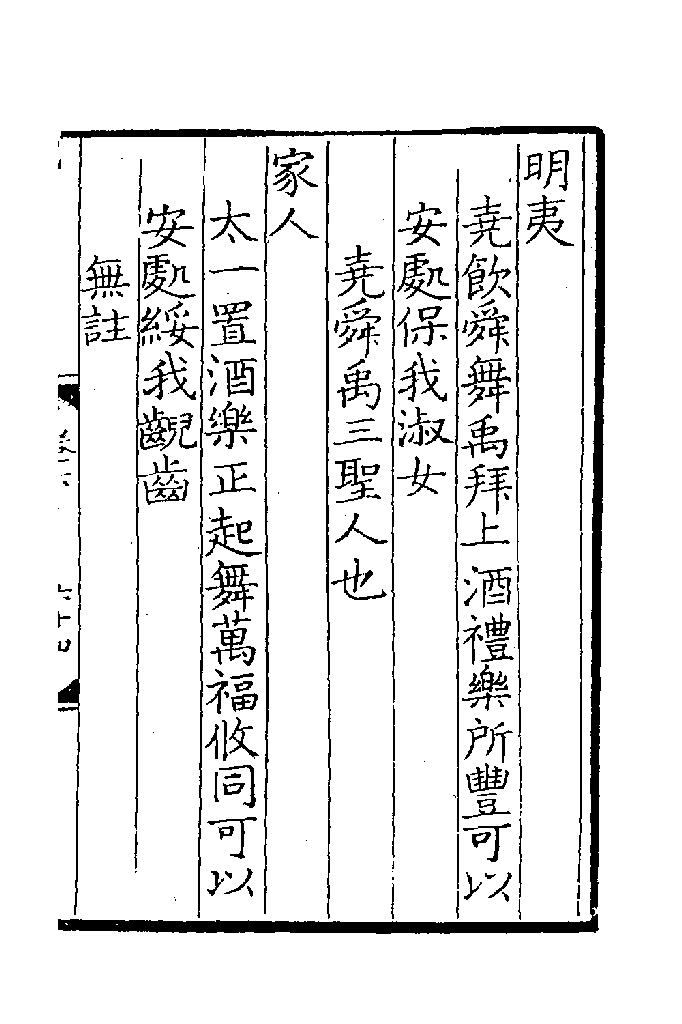 明夷
堯飲舜舞禹拜上酒禮樂所豐可以
安處保我淑女
堯舜禹三聖人也
家人
太一置酒樂正起舞萬福攸同可以
安處綏我齯齒
無註